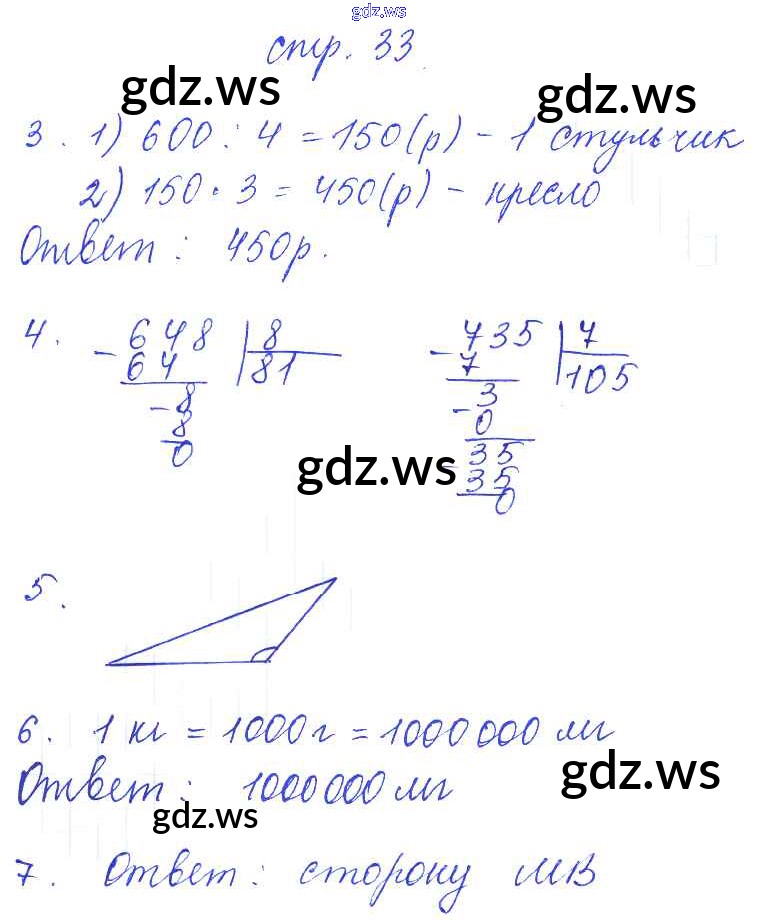 gdz.ws
стр. 33
gdz.ws gdz.ws
3. 1) 600 : 4 = 150(р) - 1 стульчик
2) 150 · 3 = 450(р) - кресло
Ответ : 450р.
4. - 648 | 8 - 735 | 7
64 81 7 105
- 8 3
8 - 0
0 35
gdz.ws - 35
0
5.
6. 1 кг = 1000г = 1000 000 мг
gdz.ws
Ответ : 1000 000 мг
gdz.ws
7. Ответ : сторону МВ